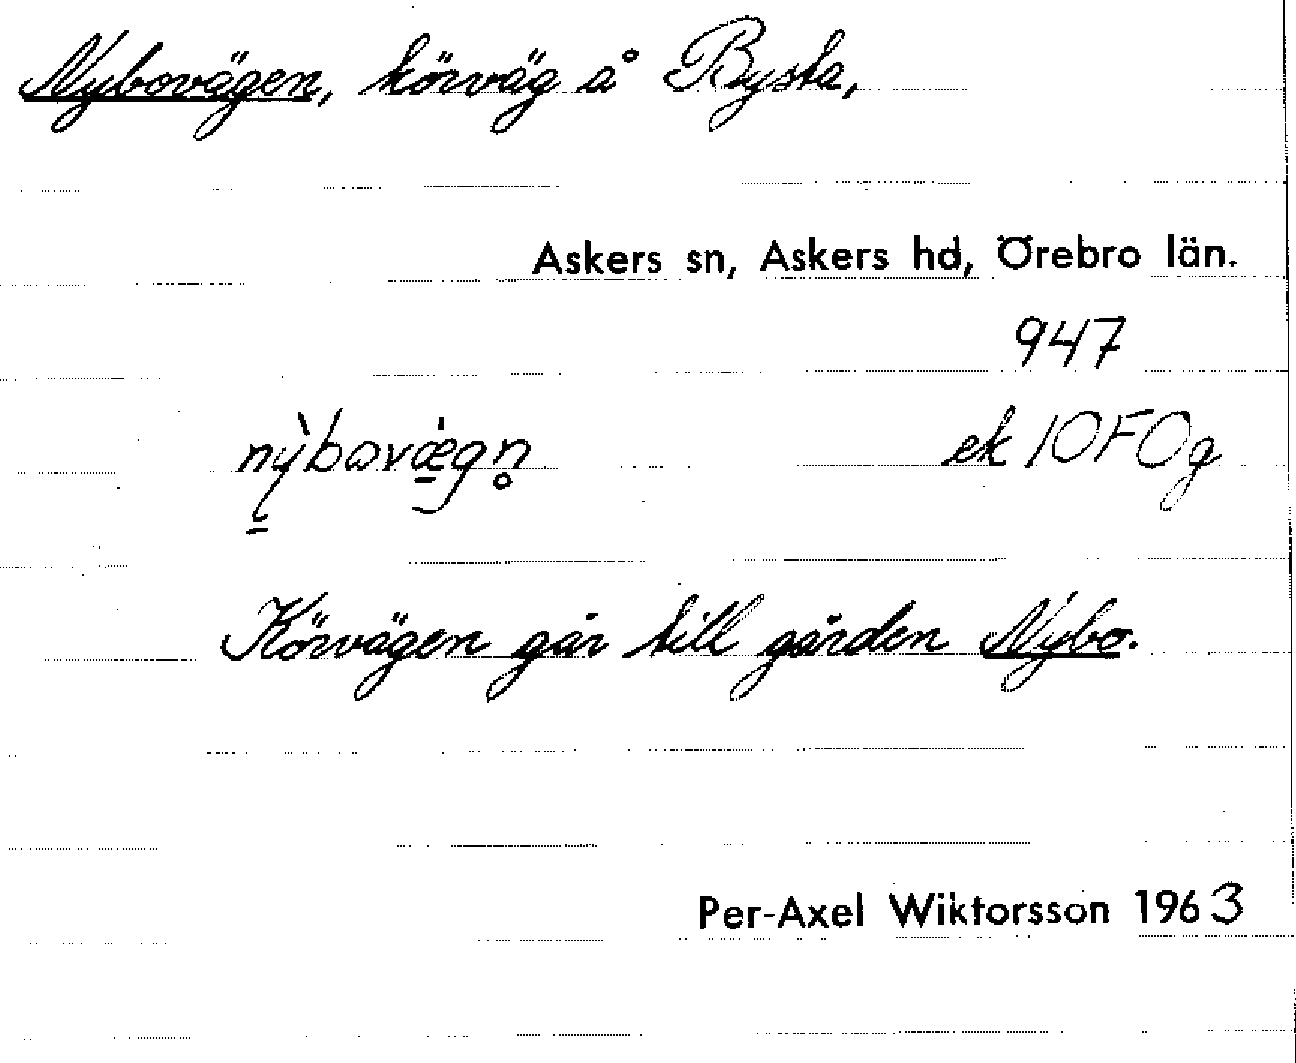 Nybovägen, körväg å Bysta,
Askers sn, Askers hd, Örebro län.
947
nỳbovæ̀gn̥
ek 10F0g
Körvägen går till gården Nybo.
Per-Axel Wiktorsson 1963